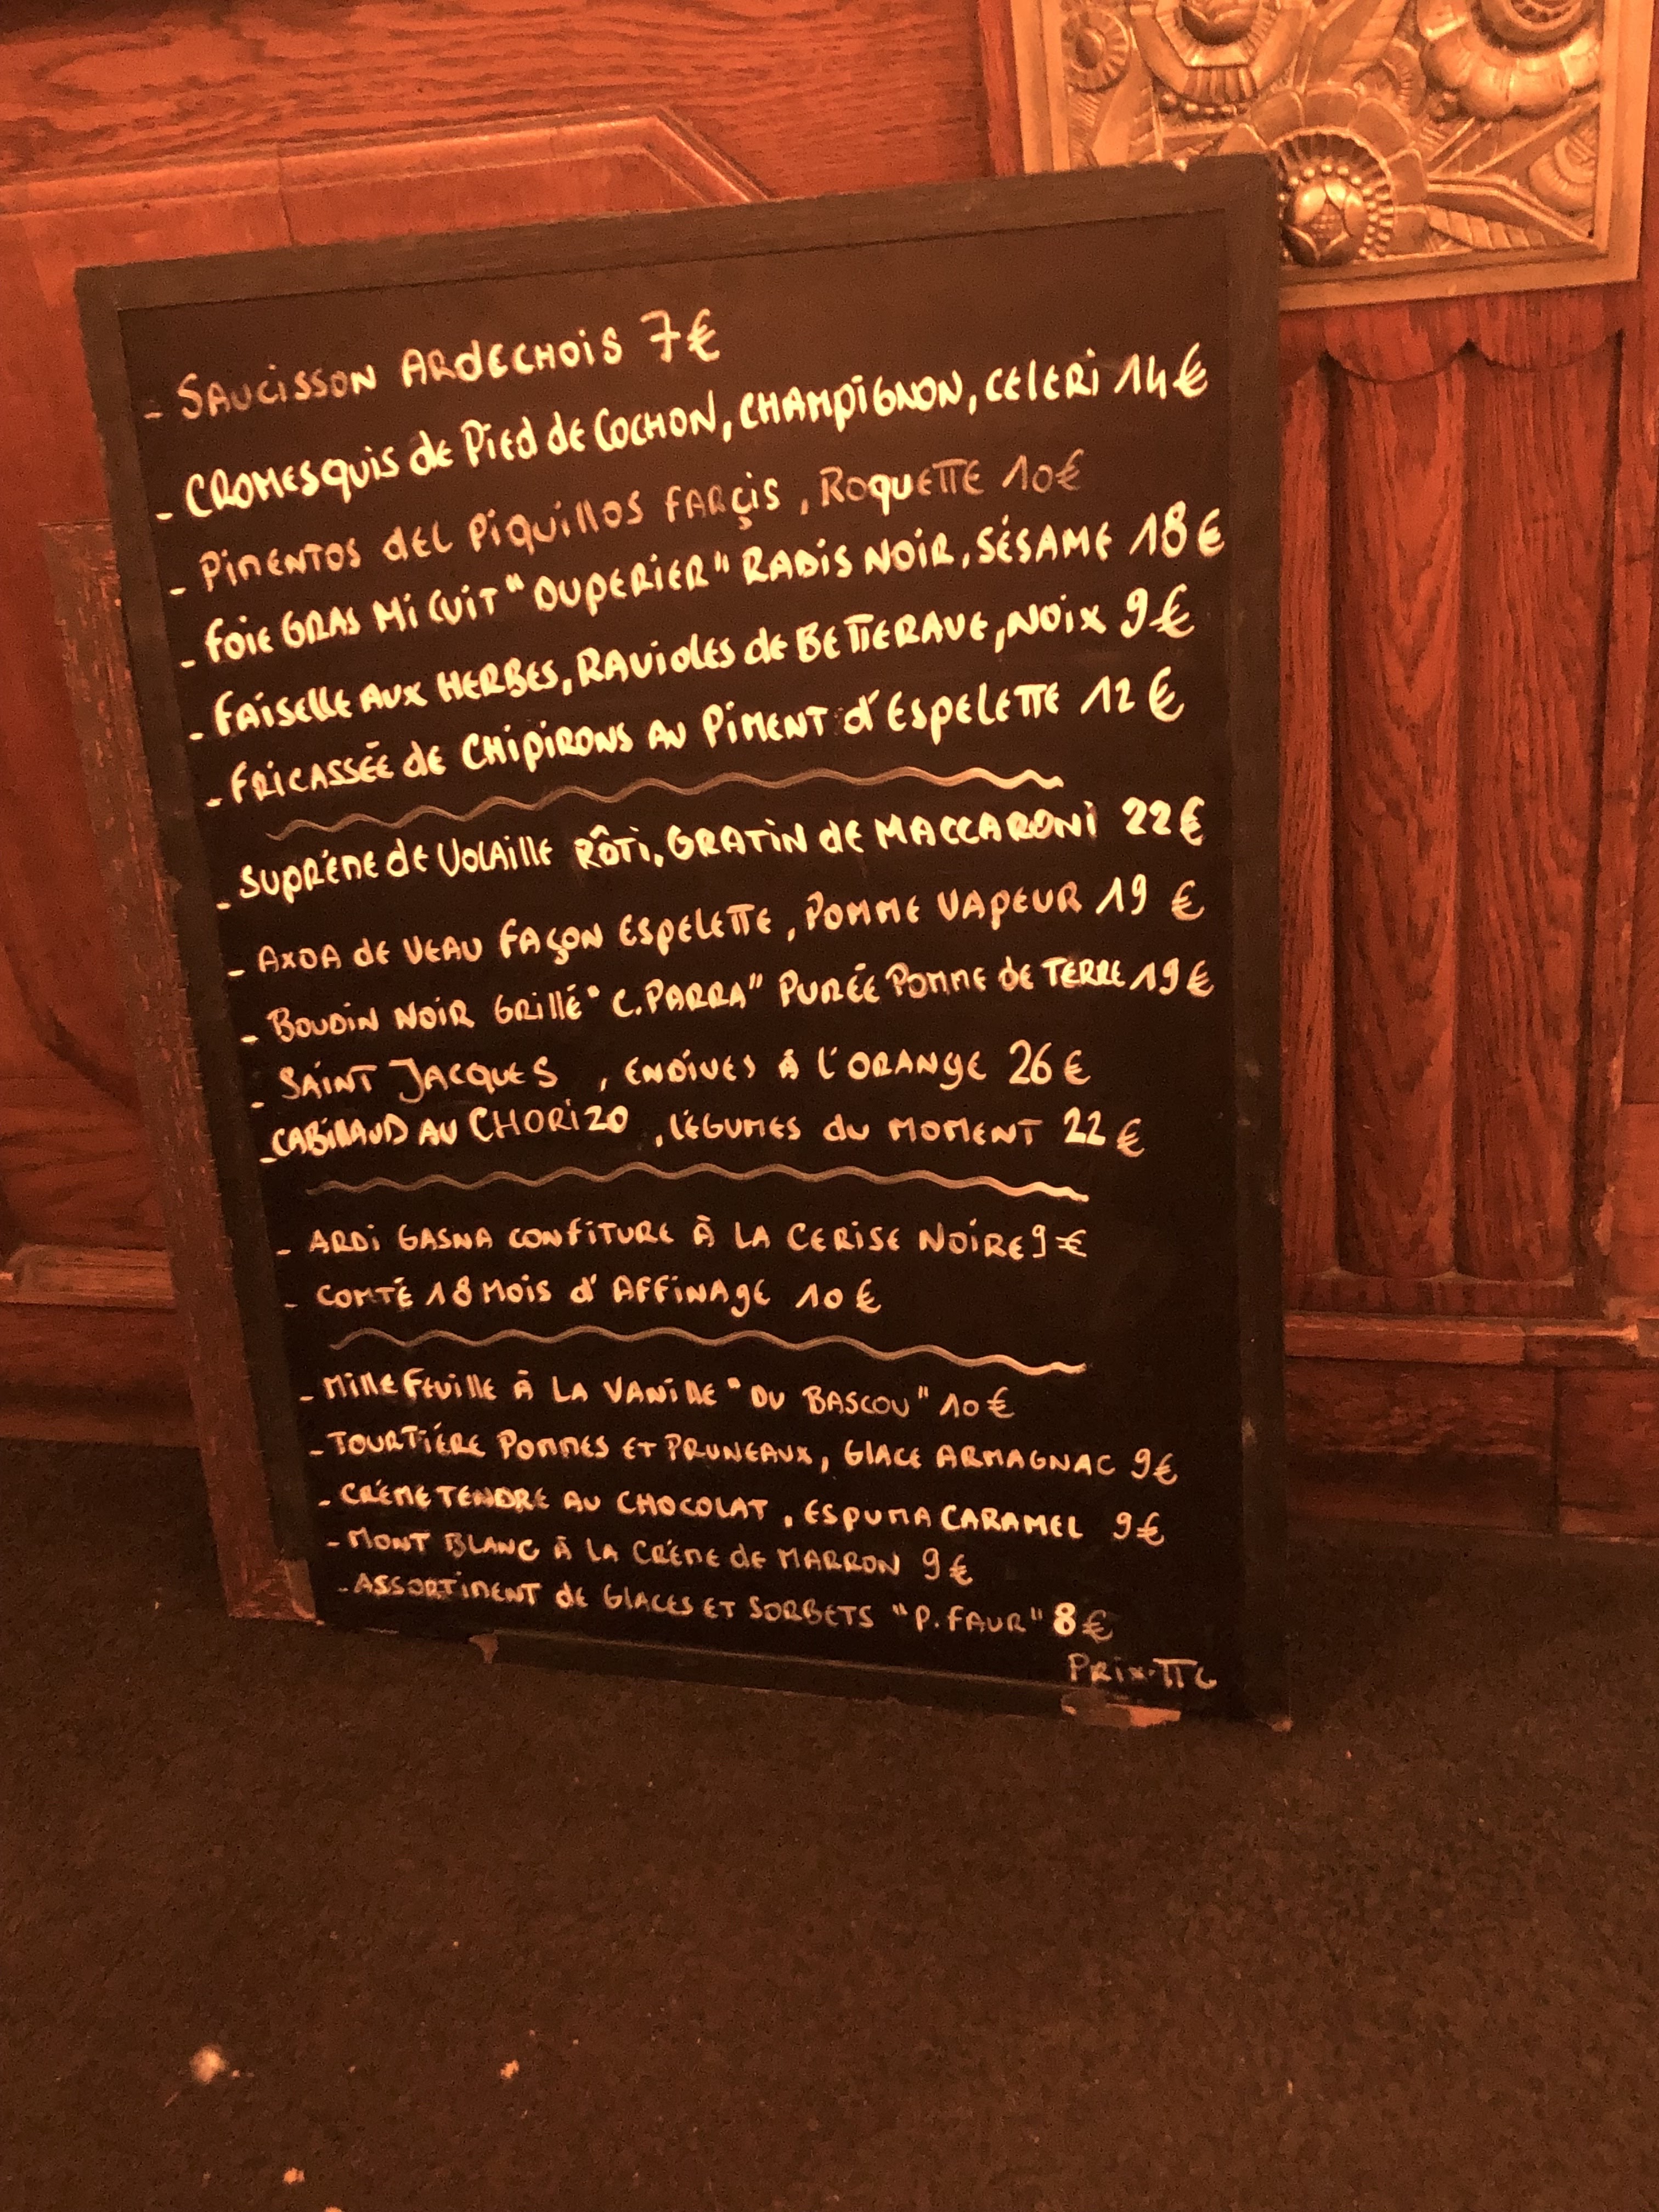 - SAUCISSON ARDECHOIS 7€
- CROMESQUIS de Pied de COCHON, CHAMPIGNON, CELERI 14€
- PIMENTOS DEL PIQUILLOS FARÇIS, ROQUETTE 10€
- FOIE GRAS MI CUIT "DUPERIER" RADIS NOIR, SÉSAME 18€
- FAISELLE AUX HERBES, RAVIOLES de BETTERAVE, NOIX 9€
- FRICASSÉE de CHIPIRONS AU PIMENT d'ESPELETTE 12€
- SUPRÉME de VOLAILLE RÔTI, GRATIN de MACCARONI 22€
- AXOA de VEAU FAÇON ESPELETTE, POMME VAPEUR 19 €
- BOUDIN NOIR GRILLÉ "C.PARRA" PURÉE POMME de TERRE 19€
- SAINT JACQUES, ENDIVES À L'ORANGE 26€
- CABILLAUD AU CHORIZO, LÉGUMES DU MOMENT 22€
- ARDI GASNA CONFITURE À LA CERISE NOIRE 9€
- COMTÉ 18 MOIS d'AFFINAGE 10€
- MILLE FEUILLE À LA VANILLE "DU BASCOU" 10€
- TOURTIÈRE POMMES ET PRUNEAUX, GLACE ARMAGNAC 9€
- CRÉME TENDRE AU CHOCOLAT, ESPUMA CARAMEL 9€
- MONT BLANC À LA CRÉME de MARRON 9€
- ASSORTIMENT de GLACES ET SORBETS "P.FAUR" 8€
PRIX·TTC